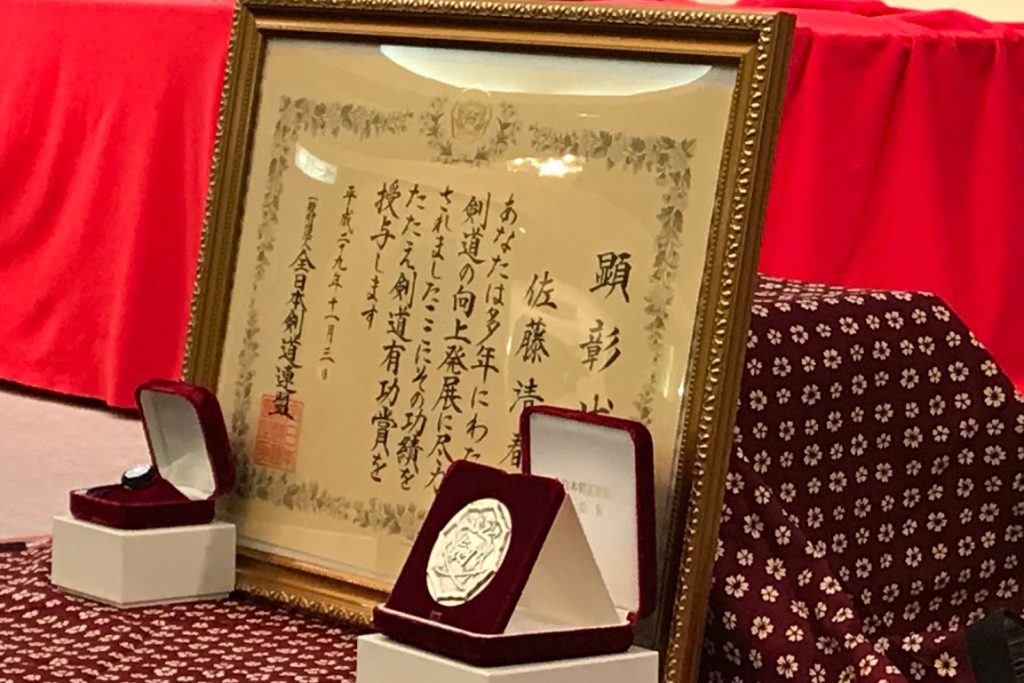 顕彰状
佐藤清春
あなたは多年にわた
剣道の向上発展に尽力
されましたここにその功績を
たたえ剣道有功賞を
授与します
平成二十九年十一月三日
全日本剣道連盟